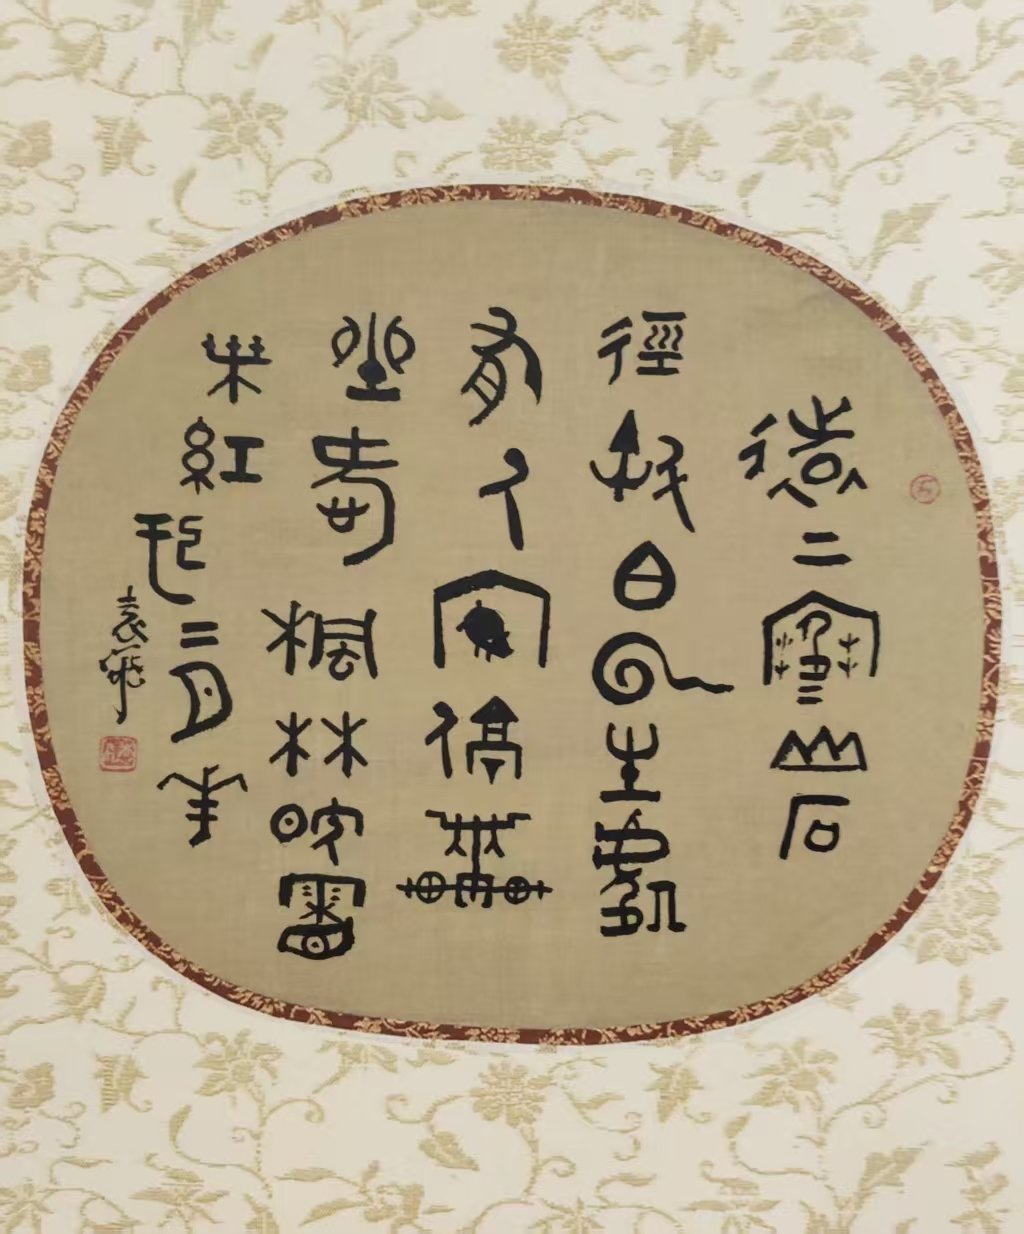 遠上寒山石
徑斜白云生處
有人家停車
坐愛楓林晚霜
葉紅於二月花
袁